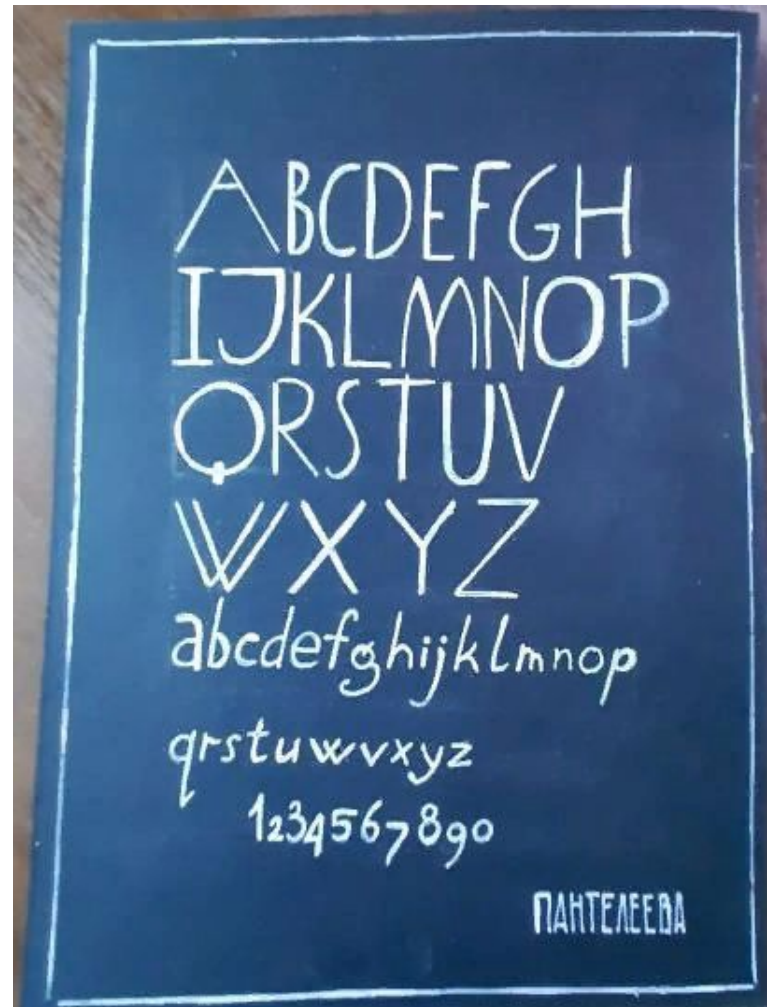 ABCDEFGH
IJKLMNOP
QRSTUV
WXYZ
abcdefghijklmnop
qrstuwvxyz
1234567890
ПАНТЕЛЕЕВА